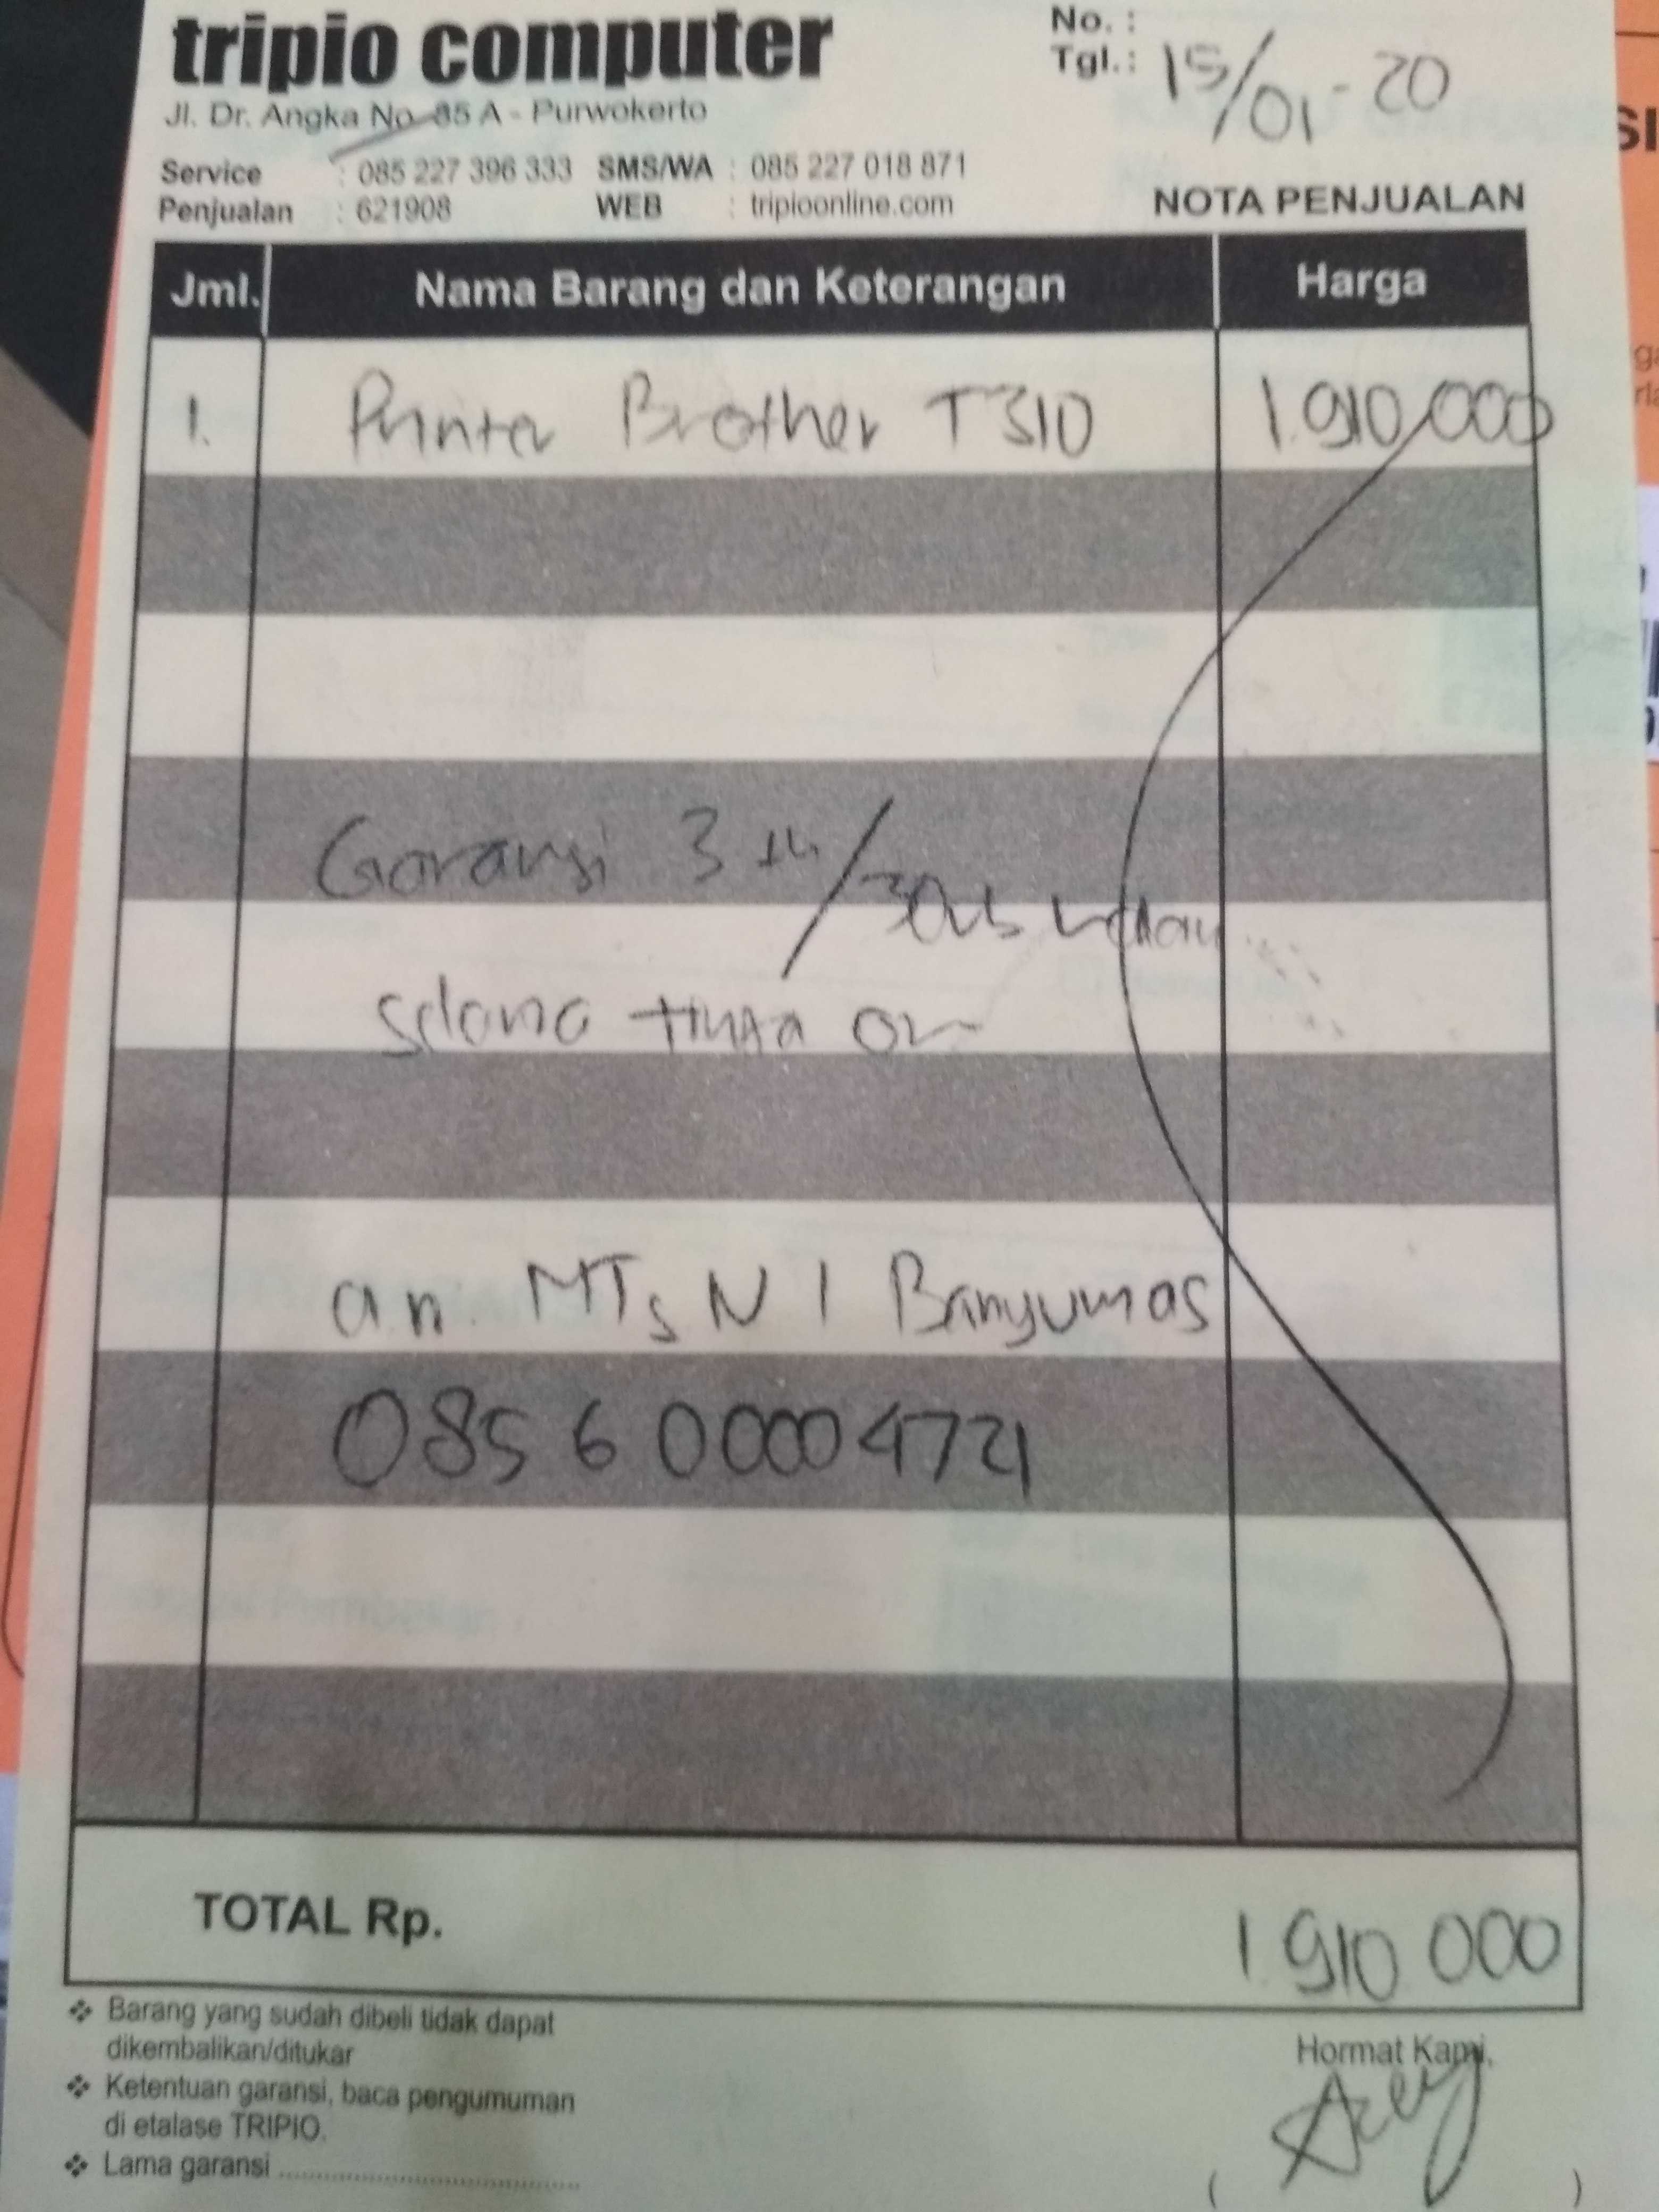 tripio computer
Jl. Dr. Angka No. 85 A - Purwokerto
No. :
Tgl. : 15/01-20
Service : 085 227 396 333 SMS/WA : 085 227 018 871
Penjualan : 621908 WEB : tripioonline.com
NOTA PENJUALAN
Jml. Nama Barang dan Keterangan Harga
1. Printer Brother T310 1.910.000
Garansi 3 th/
tinta
an. MTs N 1 Banyumas
085 6 0000 4721
TOTAL Rp. 1.910 000
❖ Barang yang sudah dibeli tidak dapat
dikembalikan/ditukar
❖ Ketentuan garansi, baca pengumuman
di etalase TRIPIO.
❖ Lama garansi ........................................
Hormat Kami,
( )